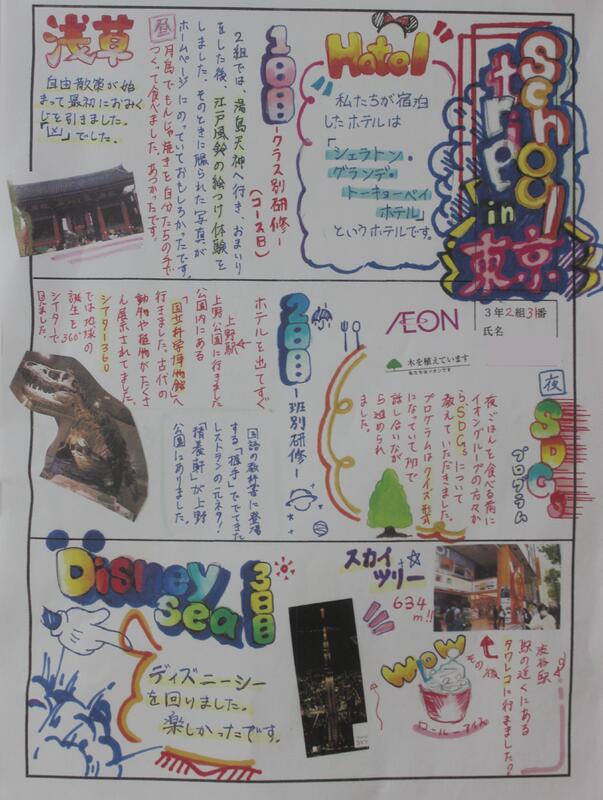 School
trip
in
東京
Hotel
私たちが宿泊
したホテルは
「シェラトン・
グランデ・
トーキョーベイ
ホテル」
というホテルです。
1日目-クラス別研修-
(コース日)
2組では、湯島天神へ行き、おまいり
をした後、江戸風鈴の絵つけ体験を
しました。そのときに撮られた写真が
ホームページにのっていておもしろかったです。
昼
月島でもんじゃ焼きを自分たちの手で
つくって食べました。あつかったです。
浅草
自由散策が始
まって最初におみく
じを引きました。
「凶」でした。
3年2組3番
氏名
夜
SDGs
プログラム
夜ごはんを食べる前に
イオングループの方々か
ら、SDGsについて
教えていただきました。
プログラムはクイズ形式
になっていて班で
話し合いなが
ら進められ
ました。
ÆON
木を植えています
私たちはイオンです
2日目-班別研修-
ホテルを出てすぐ
上野駅
上野公園に行きました
公園内にある
「国立科学博物館」へ
行きました。古代の
動物や植物がたくさ
ん展示されてました。
シアター360
では地球の
誕生を360°
シアターで
見ました。
国語の教科書に登場
する「握手」ででてきた
レストランの元ネタ!
「精養軒」が上野
公園にありました。
Disney
sea
3日目
ディズニーシー
を回りました。
楽しかったです。
スカイ
ツリー
634
m!!
渋谷駅
駅の近くにある
タワレコに行きました?
その後
WOW
ロールアイス